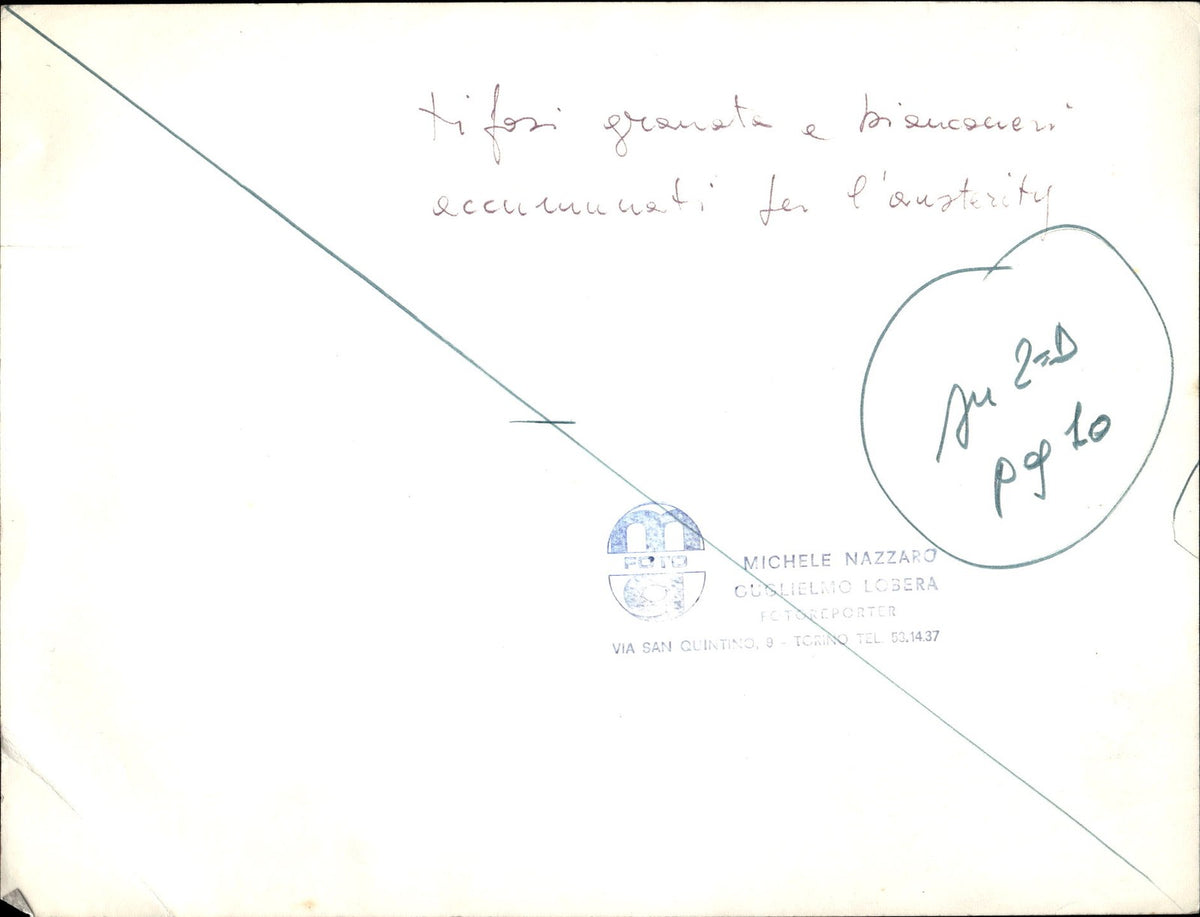 tifosi granata e bianconeri
accumunati per l'austerity
2=D
pag 10
FOTO
MICHELE NAZZARO
GUGLIELMO LOBERA
FOTOREPORTER
VIA SAN QUINTINO, 9 - TORINO TEL. 53.14.37